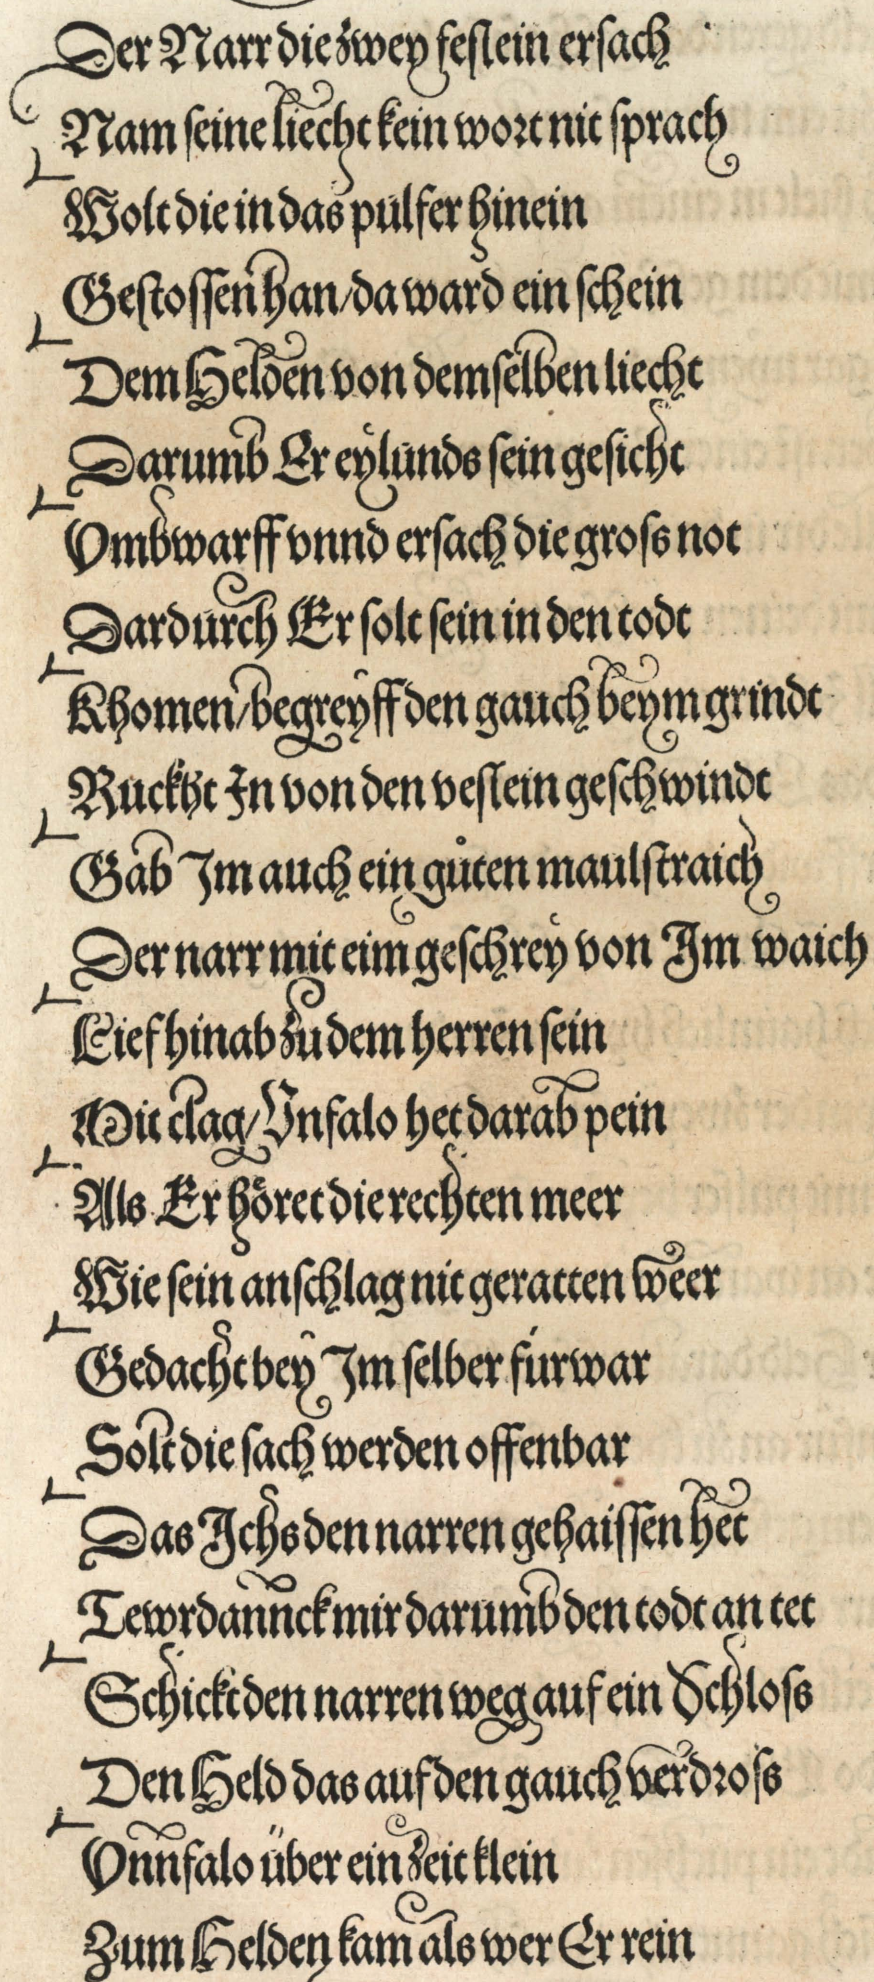 Der Narr die zwey feslein ersach
Nam seine liecht kein wort nit sprach
Wolt die in das pulfer hinein
Gestossen han/da ward ein schein
Dem Helden von demselben liecht
Darumb Er eylunds sein gesicht
Vmbwarff vnnd ersach die gross not
Dardurch Er solt sein in den todt
Khomen/begreyff den gauch beym grindt
Ruckht In von den veslein geschwindt
Gab Im auch ein gůten maulstraich
Der narr mit eim geschrey von Im waich
Lief hinab zu dem herren sein
Mit clag/Vnfalo het darab pein
Als Er höret die rechten meer
Wie sein anschlag nit geratten weer
Gedacht bey Im selber fürwar
Solt die sach werden offenbar
Das Ichs den narren gehaissen het
Tewrdannck mir darumb den todt an tet
Schickt den narren weg auf ein Schloss
Den Held das auf den gauch verdross
Vnnfalo über ein zeit klein
Zum Helden kam als wer Er rein